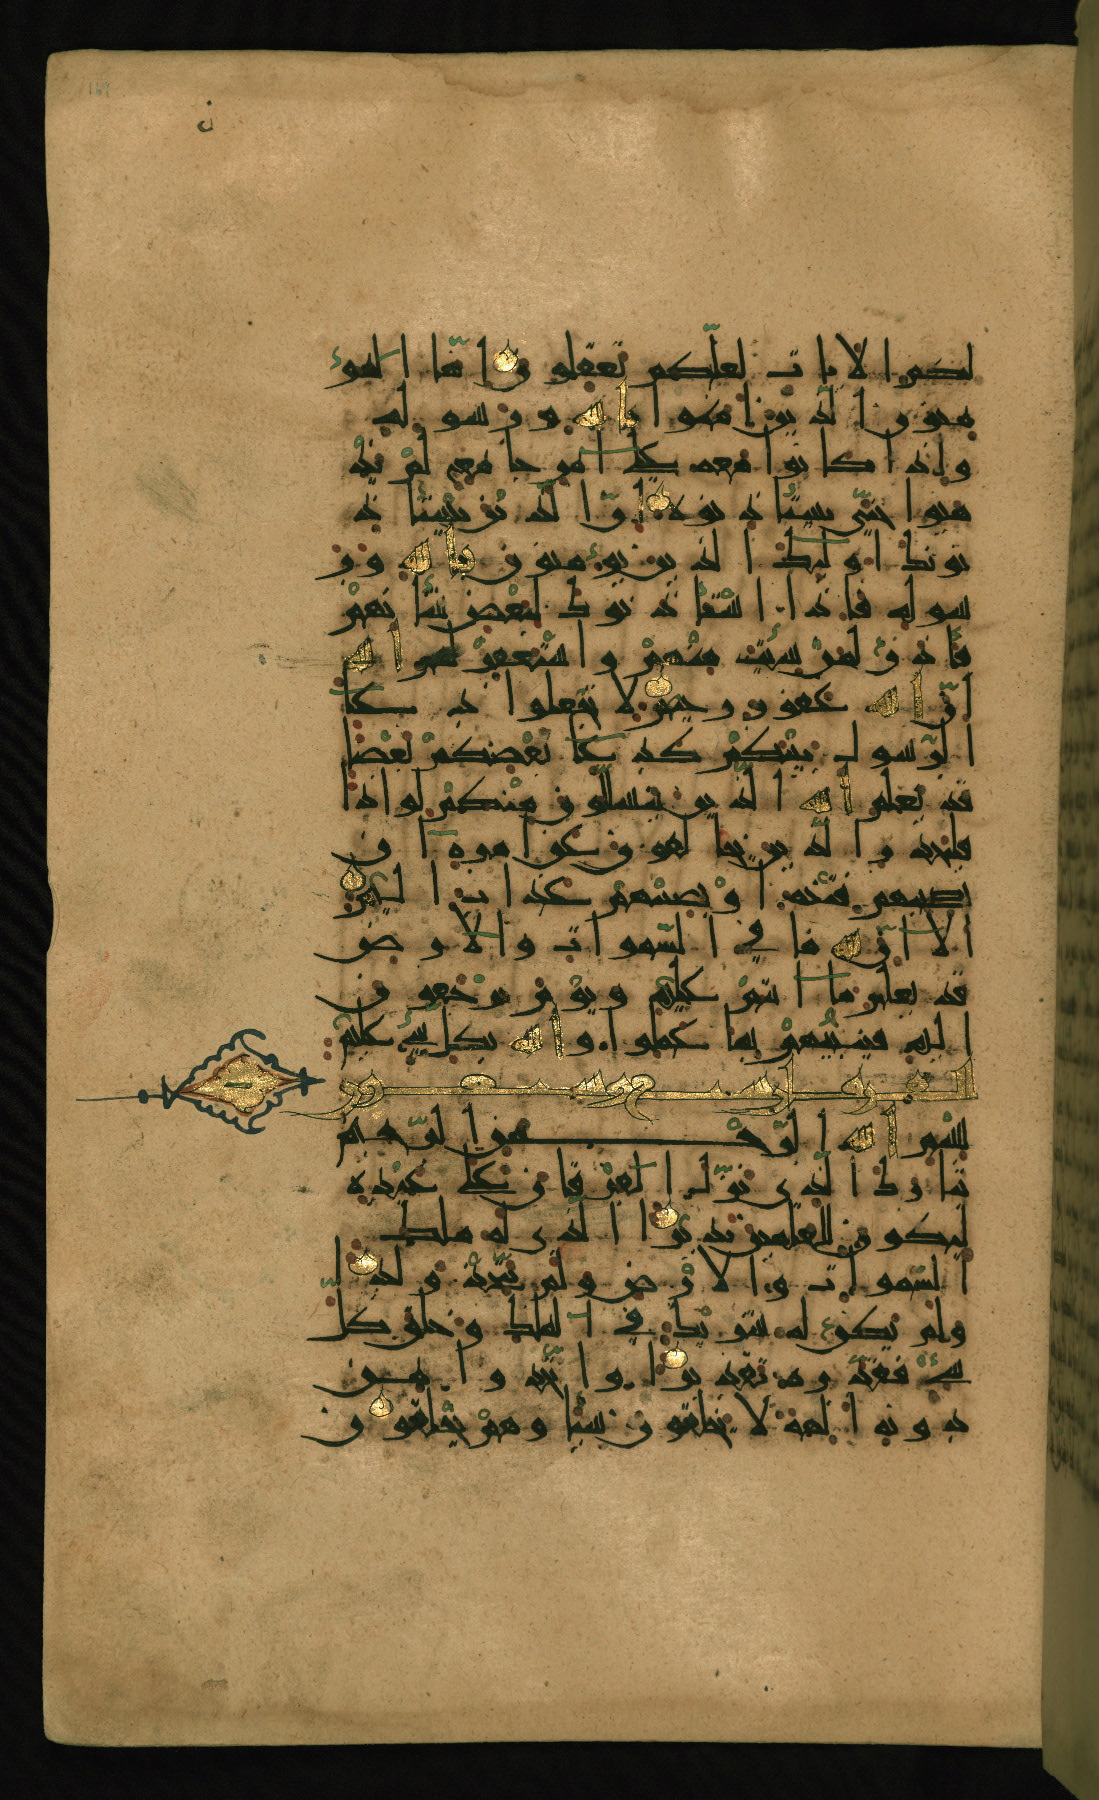 لكم الايات لعلكم تعقلون انما المؤ
منون الذين امنوا بالله ورسوله
واذا كانوا معه على امر جامع لم يذ
هبوا حتى يستاذنوه ان الذين يستاذ
نونك اولئك الذين يؤمنون بالله ور
سوله فاذا استاذنوك لبعض شانهم
فاذن لمن شئت منهم واستغفر لهم الله
ان الله غفور رحيم لا تجعلوا دعا
الرسول بينكم كدعا بعضكم بعضا
قد يعلم الله الذين يتسللون منكم لواذا
فليحذر الذين يخالفون عن امره ان
تصيبهم فتنة او يصيبهم عذاب اليم
الا ان لله ما في السموات والارض
قد يعلم ما انتم عليه ويوم يرجعون
اليه فينبئهم بما عملوا والله بكل شيء عليم
الفرقان سبع وسبعون
بسم الله الرحمن الرحيم
تبارك الذي نزل الفرقان على عبده
ليكون للعلمين نذيرا الذي له ملك
السموات والارض ولم يتخذ ولدا
ولم يكن له شريك في الملك وخلق كل
شيء فقدره تقديرا واتخذوا من
دونه الهة لا يخلقون شيئا وهم يخلقون